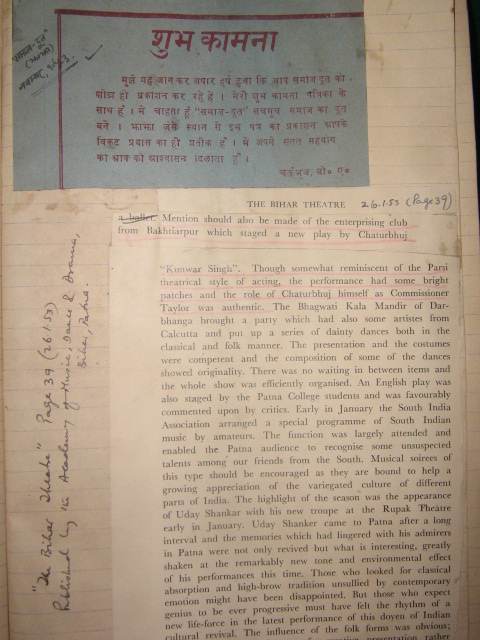 समाज-दूत
शुभ कामना
मुझे यह जान कर अपार हर्ष हुआ कि आप समाज-दूत का
प्रकाशन कर रहे हैं । मेरी शुभ कामना पत्रिका के
साथ है । मैं चाहता हूँ "समाज-दूत" सचमुच समाज का दूत
बने । झाझा जैसे स्थान से इस पत्र का प्रकाशन आपके
प्रयास का ही प्रतीक है । मैं अपने सतत सहयोग
का आप को आश्वासन दिलाता हूँ ।
चतुर्भुज, बी० ए०
THE BIHAR THEATRE 26.1.53 (Page 39)
a ballet. Mention should also be made of the enterprising club
from Bakhtiarpur which staged a new play by Chaturbhuj
"Kunwar Singh". Though somewhat reminiscent of the Parsi
theatrical style of acting, the performance had some bright
patches and the role of Chaturbhuj himself as Commissioner
Taylor was authentic. The Bhagwati Kala Mandir of Dar-
bhanga brought a party which had also some artistes from
Calcutta and put up a series of dainty dances both in the
classical and folk manner. The presentation and the costumes
were competent and the composition of some of the dances
showed originality. There was no waiting in between items and
the whole show was efficiently organised. An English play was
also staged by the Patna College students and was favourably
commented upon by critics. Early in January the South India
Association arranged a special programme of South Indian
music by amateurs. The function was largely attended and
enabled the Patna audience to recognise some unsuspected
talents among our friends from the South. Musical soirees of
this type should be encouraged as they are bound to help a
growing appreciation of the variegated culture of different
parts of India. The highlight of the season was the appearance
of Uday Shankar with his new troupe at the Rupak Theatre
early in January. Uday Shanker came to Patna after a long
interval and the memories which had lingered with his admirers
in Patna were not only revived but what is interesting, greatly
shaken at the remarkably new tone and environmental effect
of his performances this time. Those who looked for classical
absorption and high-brow tradition unsullied by contemporary
emotion might have been disappointed. But those who expect
genius to be ever progressive must have felt the rhythm of a
new life-force in the latest performance of this doyen of Indian
cultural revival. The influence of the folk forms was obvious;
"The Bihar Theatre" Page 39 (26.1.53)
Published by the Academy of Music, Dance & Drama,
Bihar, Patna.